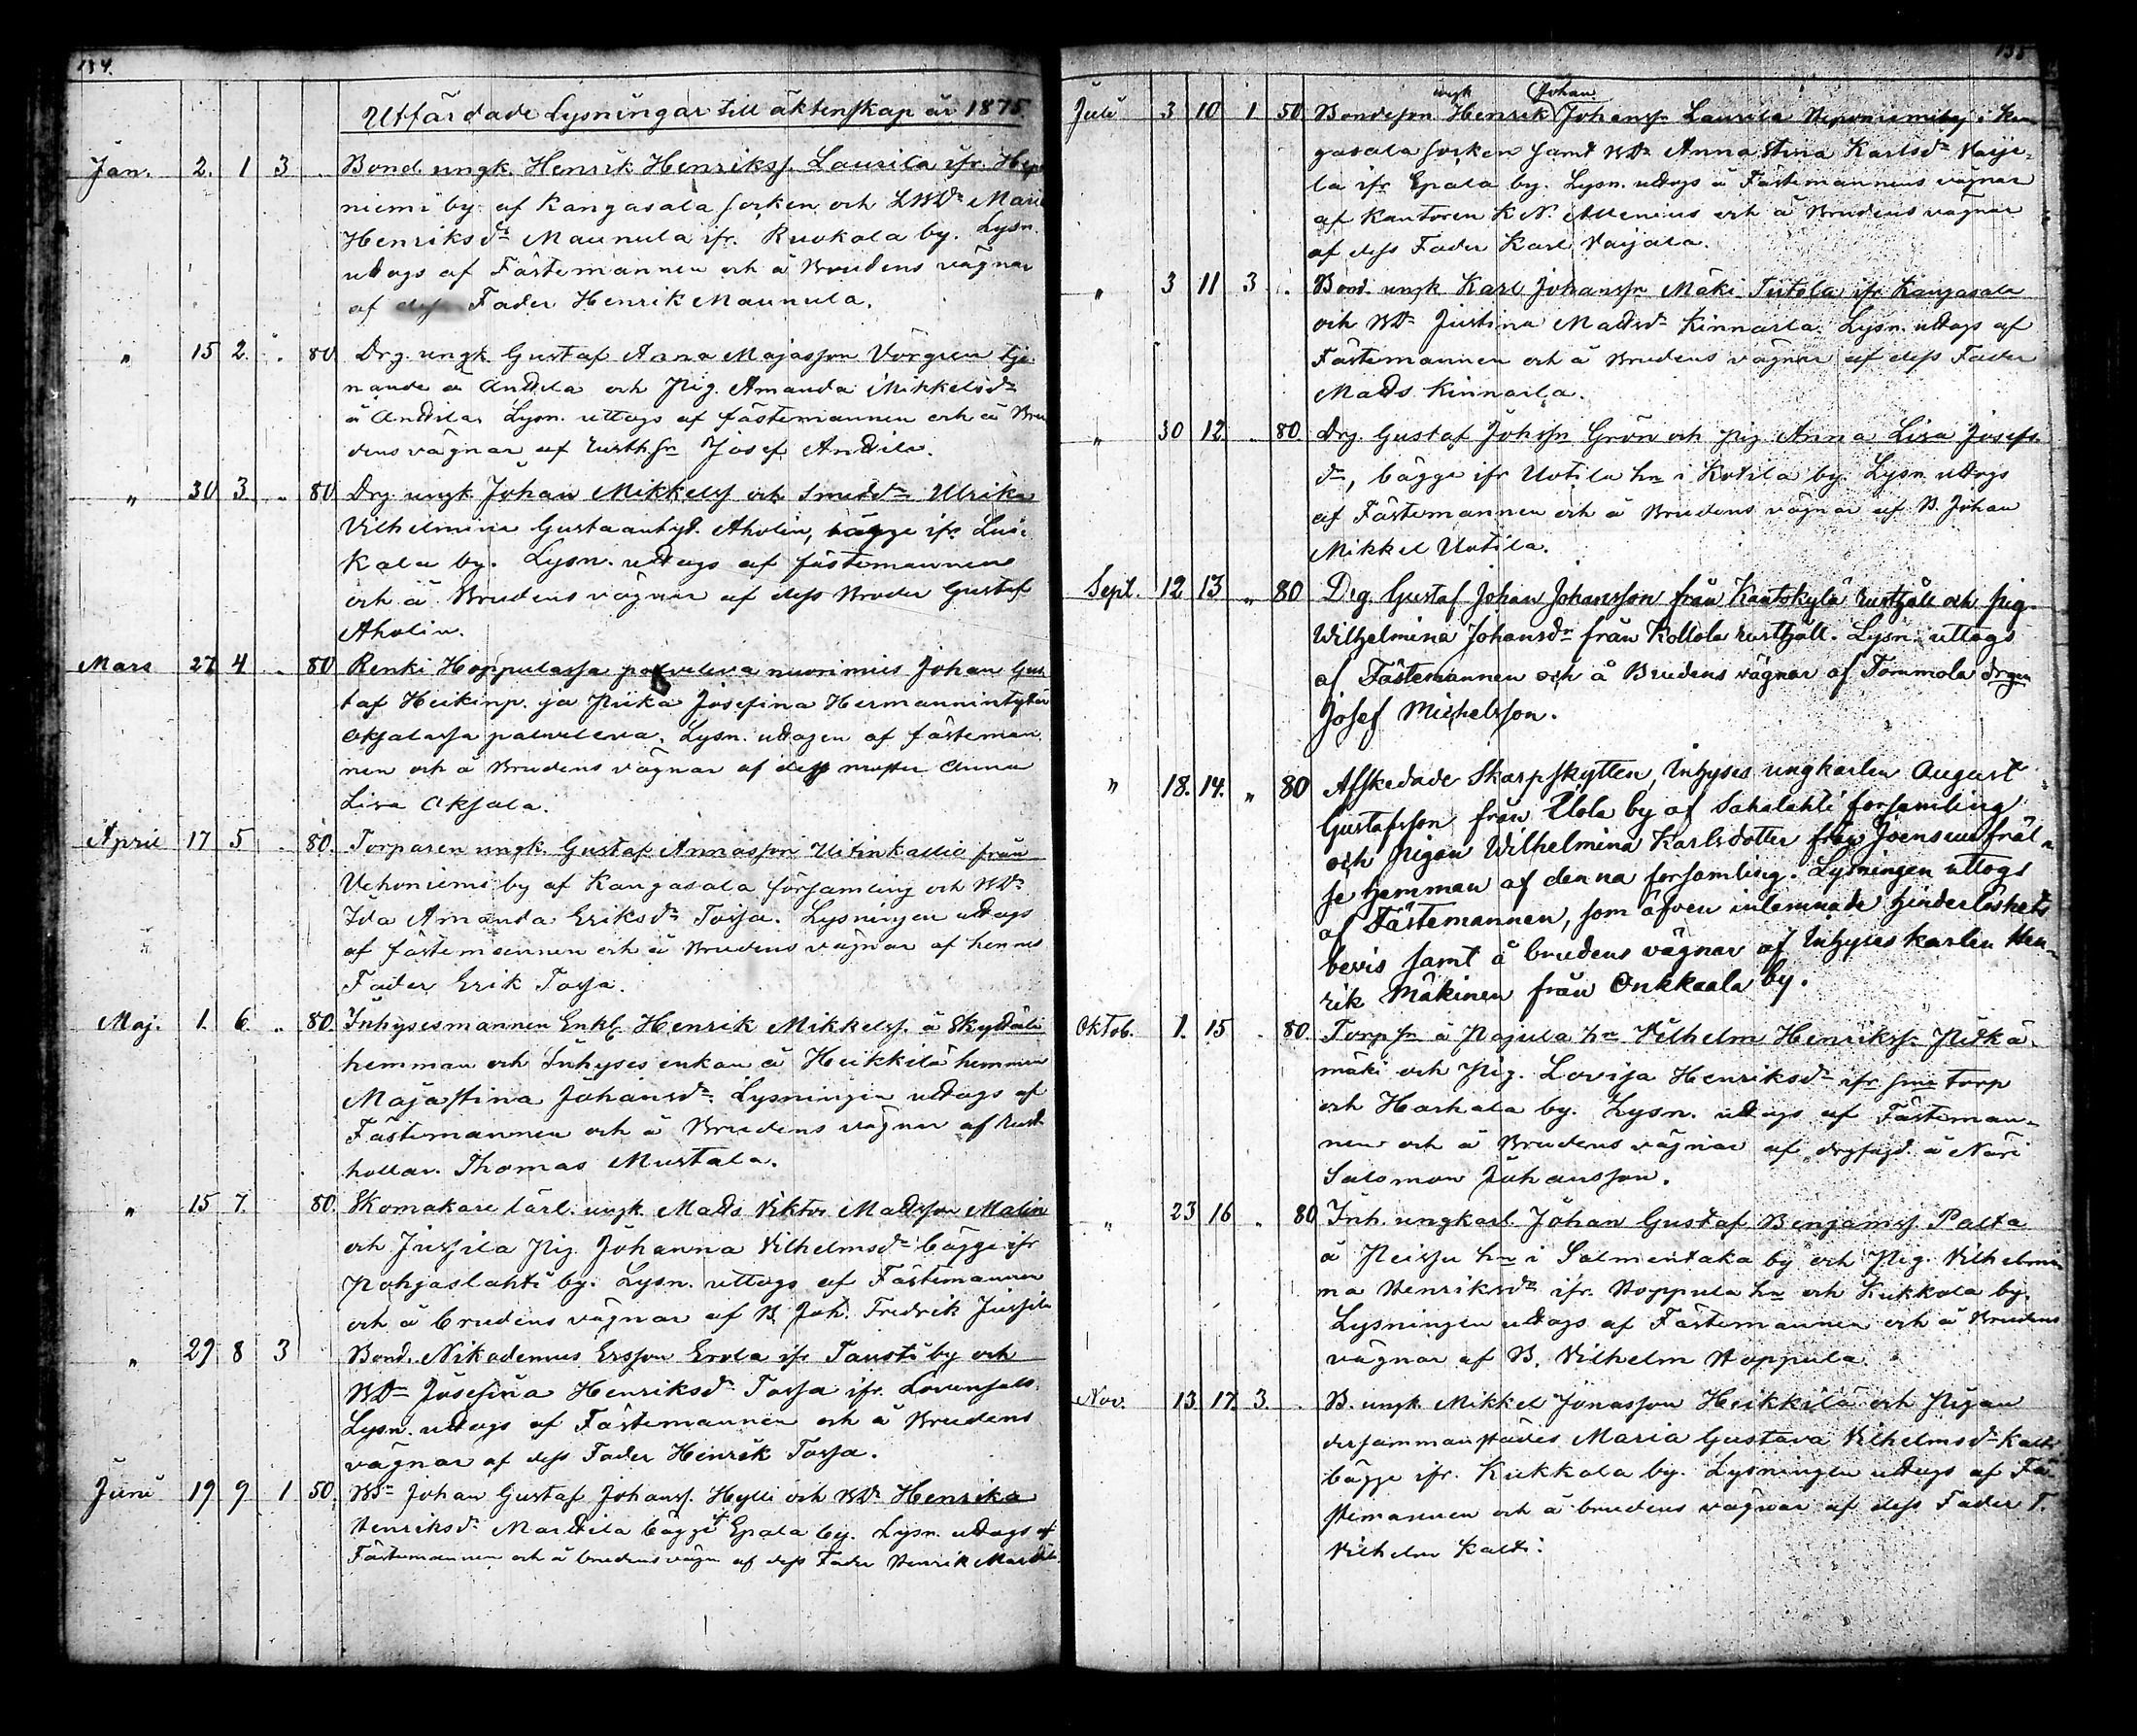 134.
Utfärdade Lysningar till äktenskap år 1875.
Jan. 2. 1 3 . Bond. ungk. Henrik Henrikss. Laurila ifr. Hepo
niemi by af Kangasala socken och LBDr Maria
Henriksdr Maunula ifr. Ruokola by. Lysn.
uttogs af Fästemannen och å Brudens vägnar
af dess Fader Henrik Maunula.
" 15 2. " 80 Drg. ungk. Gustaf Anna Majasson Vörgren tje-
nande å Anttila och Pig. Amanda Mikkelsdr
å Anttila. Lysn. uttogs af fästemannen och å Bru
dens vägnar af Rusth.sn Josef Anttila.
" 30 3. " 80 Drg. ungk. Johan Mikkelss och Smeddr Ulrika
Vilhelmina Gustaantyt. Aholin, bägge ifr. Lui-
kala by. Lysn. uttogs af fästemannen
och å Brudens vägnar af dess Broder Gustaf
Aholin.
Mars 27 4 .. 80 Renki Hoppulassa palveleva nuorimies Johan Gus
taf Heikinp. ja Piika Josefina Hermannintytär
Oksalassa palveleva. Lysn. uttagen af fästeman
nen och å Brudens vägnar af dess moster Anna
Lisa Oksala.
April 17 5 .. 80. Torparen ungk. Gustaf Annasson Uitinkallio från
Vehoniemi by af Kangasala församling och BDr
Ida Amanda Eriksdr Tarsa. Lysningen uttogs
af fästemannen och å Brudens vägnar af hennes
Fader Erik Tarsa.
Maj. 1. 6. .. 80. Inhysesmannen Enkl. Henrik Mikkelss. å Skyttälä
hemman och Inhyses enkan å Heikkilä hemman
Maja Stina Johansdr. Lysningen uttogs af
Fästemannen och å Brudens vägnar af Rust
hollar. Thomas Mustala.
" 15 7. 80. Skomakare lärl. ungk. Matts Viktor Mattsson Malin
och Jussila Pig. Johanna Vilhelmsdr bägge ifr
Pohjaslahti by. Lysn. uttogs af Fästemannen
och å brudens vägnar af B. Joh. Fredrik Jussila
" 29 8 3 Bond. Nikodemus Ersson Erola ifr Tausti by och
BDr Josefina Henriksdr Tarsa ifr.
Lysn. uttogs af Fästemannen och å Brudens
vägnar af dess Fader Henrik Tarsa.
Juni 19 9 1 50. BSn Johan Gustaf Johanss. Hylli och BDr Henrika
Henriksdr Marttila bägge fr Epala by. Lysn. uttogs af
Fästemannen och å brudens vägn af dess Fader Henrik Marttila.
135
ungk Johan
Juli 3 10 1 50 Bondeson Henrik Johanssn Laurila Heponiemi by i Kan
gasala socken samt BDr Anna Stina Karlsdr Naije-
la ifr Epala by. Lysn. uttogs å Fästemannens vägnar
af Kantoren K N. Allenius och å Brudens vägnar
af dess Fader Karl Naijala.
" 3 11 3 . Bond. ungk Karl Johanssn Mäki Tutola ifr Kangasala
och BDr Justina Mattsdr Kinnarla. Lysn. uttogs af
Fästemannen och å Brudens vägnar af dess Fader
Matts Kinnarla.
" 30 12. .. 80 Drg. Gustaf Johssn Grön och Pig. Anna Lisa Josefs
dr, bägge ifr Uotila hn i Kotila by. Lysn uttogs
af Fästemannen och å Brudens vägnar af B. Johan
Mikkel Uotila.
Sept. 12 13 " 80 Drg. Gustaf Johan Johansson från Kautskylä rusthåll och pig.
Wilhelmina Johansdr från Kollola rusthåll. Lysn. uttogs
af Fästemannen och å Brudens vägnar af Tommola drgen
Josef Michelsson.
" 18. 14. " 80 Afskedade Skarpskytten, Inhyses ungkarlen August
Gustafsson från Uola by af Sahalahti församling
och pigan Wilhelmina Karlsdotter från Joensuu fräl-
se hemman af denna församling. Lysningen uttogs
af Fästemannen, som äfven inlemnade hinderlöshets
bevis samt å brudens vägnar af Inhyses karlen Hen-
rik Mäkinen från Onkkaala by.
Oktob. 1. 15 . 80. Torp.sn å Pajula hn Vilhelm Henrikssn Pitkä-
mäki och Pig. Lovisa Henriksdr ifr sme torp
och Harhala by. Lysn. uttogs af Fästeman-
nen och å Brudens vägnar af å Näri
Salomon Johansson.
" 23 16 " 80 Inh. ungkarl. Johan Gustaf Benjamss. Palta
å Peissu hn i Salmentaka by och Pig. Vilhelmi
na Henriksdr ifr. Hoppula hn och Kukkola by.
Lysningen uttogs af Fästemannen och å Brudens
vägnar af B. Vilhelm Hoppula.
Nov. 13. 17. 3. . B. ungk. Mikkel Jonasson Heikkilä och Pigan
dersammanstädes Maria Gustava Vilhelmsdr Kalti
bägge ifr. Kukkola by. Lysningen uttogs af Fä-
stemannen och å brudens vägnar af dess Fader T.
Vilhelm Kalti.